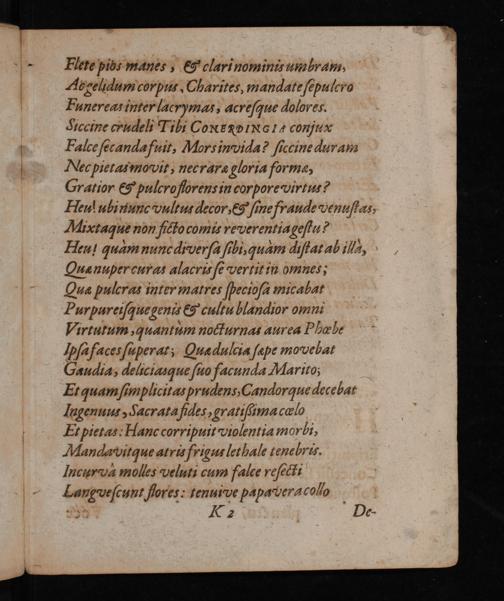 Flete pios manes, & clari nominis umbram,
Ac gelidum corpus, Charites, mandate sepulcro
Funereas inter lacrymas, acresque dolores.
Siccine crudeli Tibi CONERDINGIA conjux
Falce secanda fuit, Mors invida? siccine duram
Nec pietas movit, nec raræ gloria formæ,
Gratior & pulcro florens in corpore virtus?
Heu! ubi nunc vultus decor, & sine fraude venustas,
Mixtaque non ficto comis reverentia gestu?
Heu! quàm nunc diversa sibi, quàm distat ab illâ,
Quæ nuper curas alacris se vertit in omnes;
Quæ pulcras inter matres speciosa micabat
Purpureisque genis & cultu blandior omni
Virtutum, quantùm nocturnas aurea Phœbe
Ipsa faces superat; Quæ dulcia sæpe movebat
Gaudia, deliciasque suo facunda Marito;
Et quam simplicitas prudens, Candorque decebat
Ingenuus, Sacrata fides, gratissima cœlo
Et pietas: Hanc corripuit violentia morbi,
Mandavitque atris frigus lethale tenebris.
Incurvâ molles veluti cum falce resecti
Langvescunt flores: tenuive papavera collo
K 2 De-